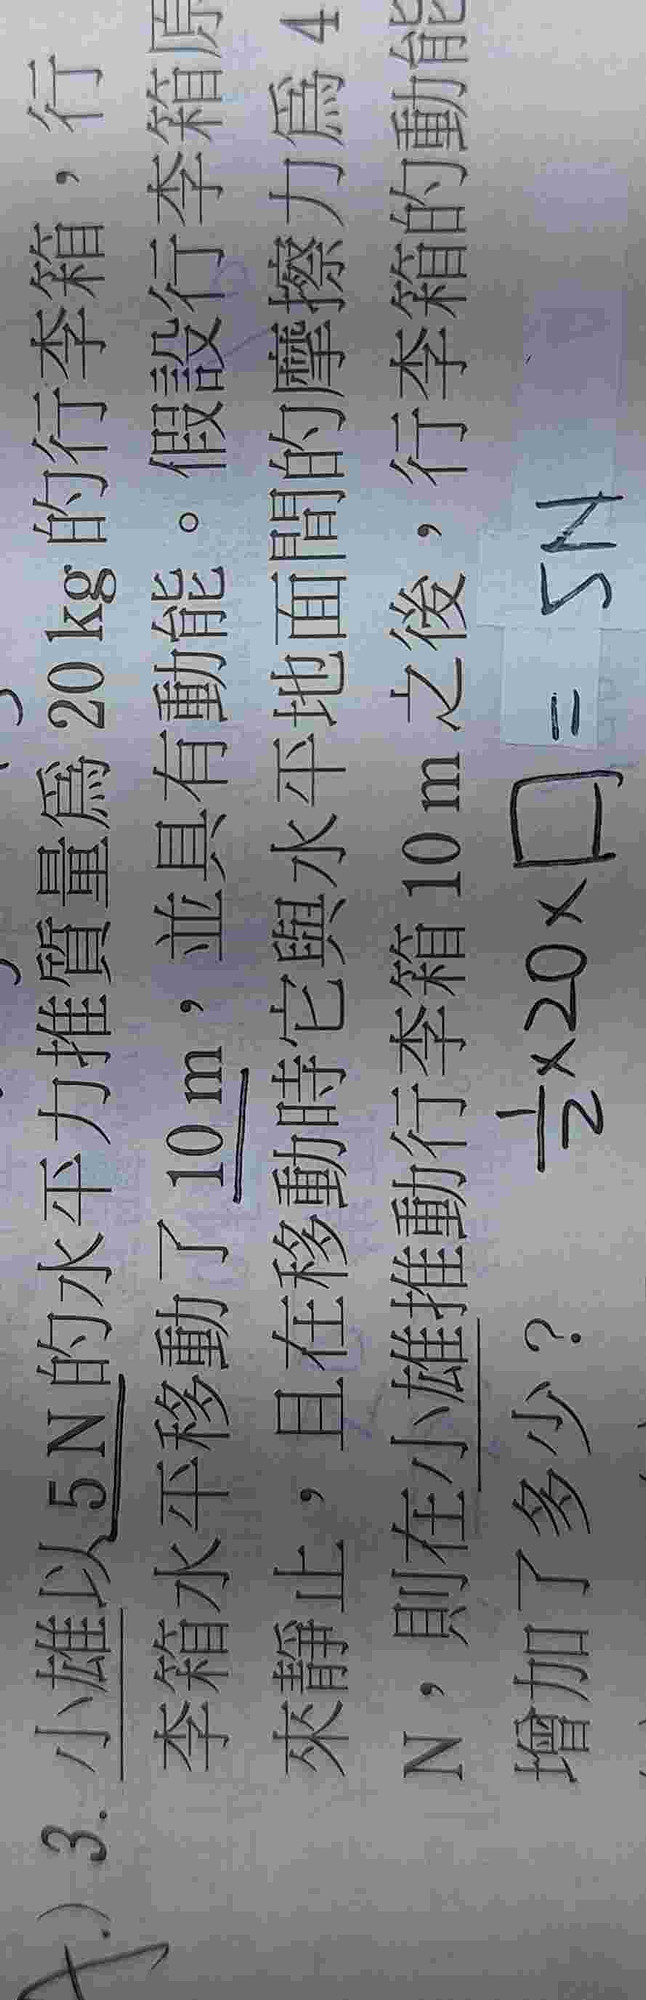 3. 小雄以 5 N 的水平力推質量為 20 kg 的行李箱，行
李箱水平移動了 10 m，並具有動能。假設行李箱原
來靜止，且在移動時它與水平地面間的摩擦力為 4
N，則在小雄推動行李箱 10 m 之後，行李箱的動能
增加了多少？ ½×20×□=5N